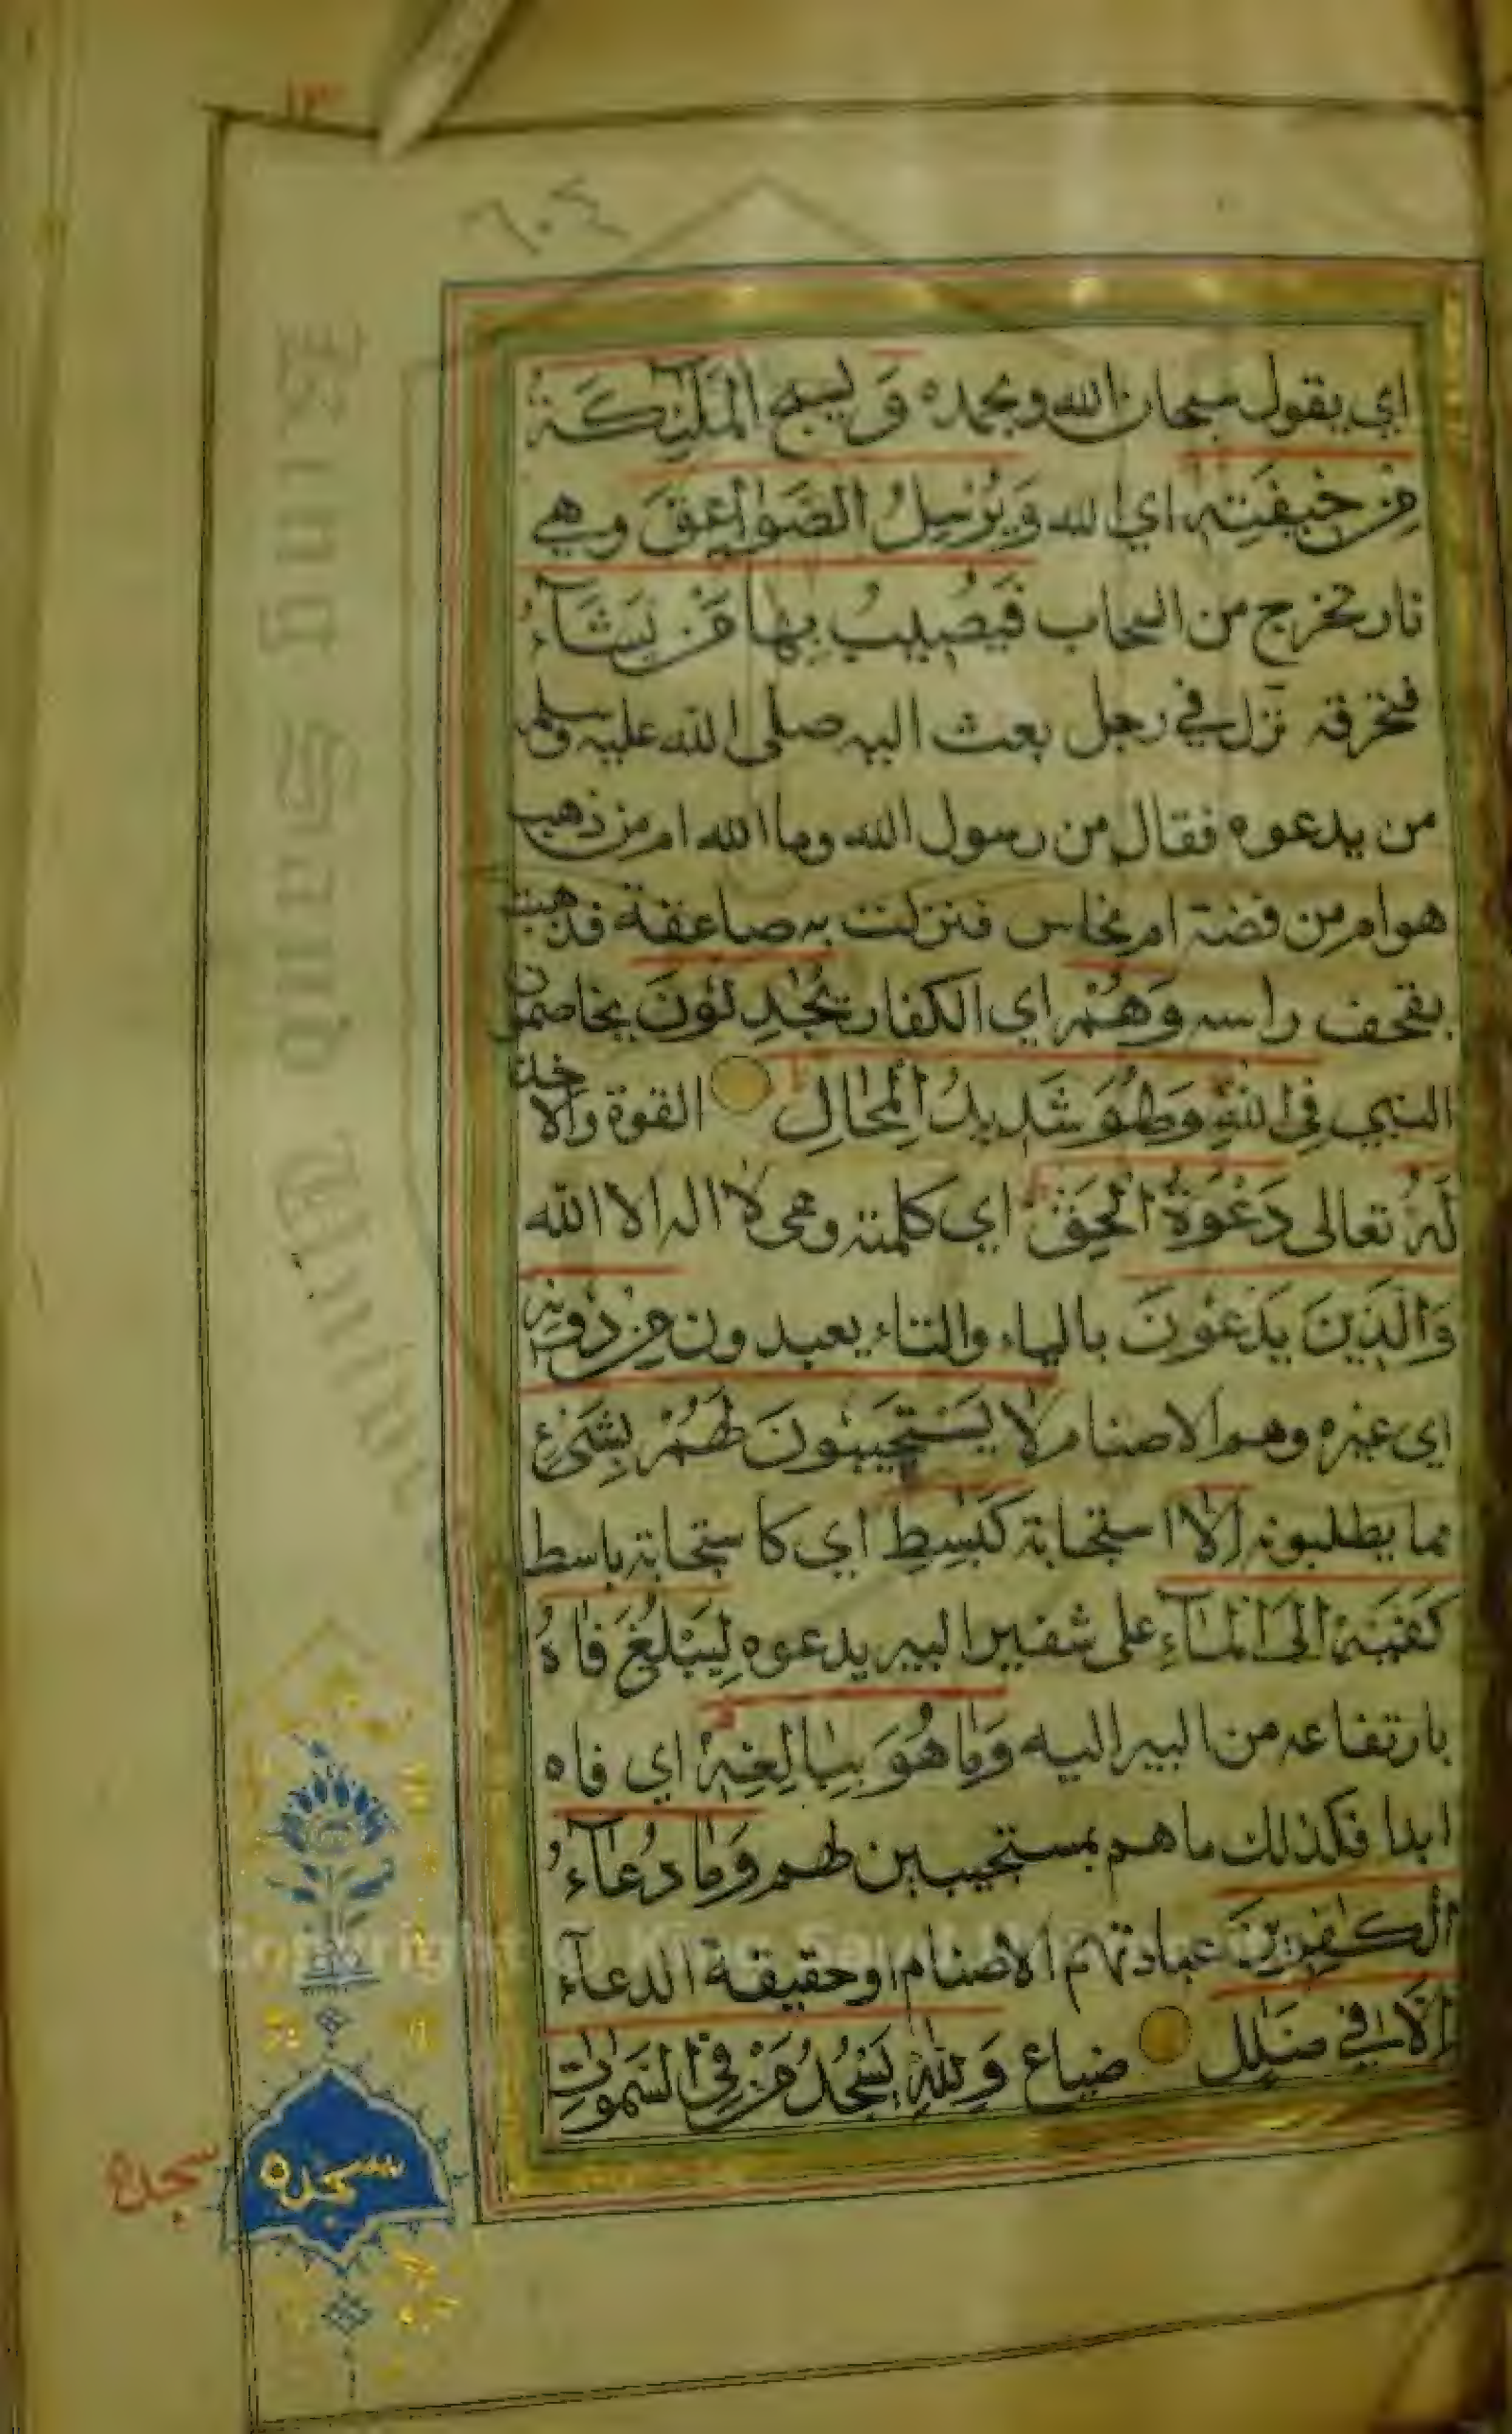 ١٣
٦٠٤
اي يقول سبحان الله وبحمده وَيسبح الْمَلٰٓئِكَةُ
مِنْ خِيفَتِهِ اي الله وَيُرْسِلُ الصَّوٰاعِقَ وهي
نار تخرج من السحاب فَيُصِيبُ بِهَا مَنْ يَشَآءُ
فتحرقه نزل في رجل بعث اليه صلى الله عليه وسلم
من يدعوه فقال من رسول الله وما الله ام من ذهب
هو ام من فضة ام نحاس فنزلت به صاعقة فذهبت
بقحف راسه وَهُمْ اي الكفار يُجٰدِلُونَ يخاصمون
النبي فِي اللّٰهِ وَهُوَ شَدِيدُ الْمِحَالِ القوة والاخذ
لَهُ تعالى دَعْوَةُ الْحَقِّ اي كلمته وهي لا اله الا الله
وَالَّذِينَ يَدْعُونَ بالياء والتاء يعبدون مِنْ دُونِهِ
اي غيره وهم الاصنام لَا يَسْتَجِيبُونَ لَهُمْ بِشَيْءٍ
مما يطلبونه اِلَّا استجابة كَبٰسِطِ اي كاستجابة باسط
كَفَّيْهِ اِلَى الْمَآءِ على شفير البير يدعوه لِيَبْلُغَ فَاهُ
بارتفاعه من البير اليه وَمَا هُوَ بِبَالِغِهِ اي فاه
ابدا فكذلك ما هم بمستجيبين لهم وَمَا دُعَآءُ
الْكٰفِرِينَ عبادتهم الاصنام او حقيقة الدعآء
اِلَّا فِي ضَلٰلٍ ضياع وَلِلّٰهِ يَسْجُدُ مَنْ فِي السَّمٰوٰاتِ
سجده
سجده